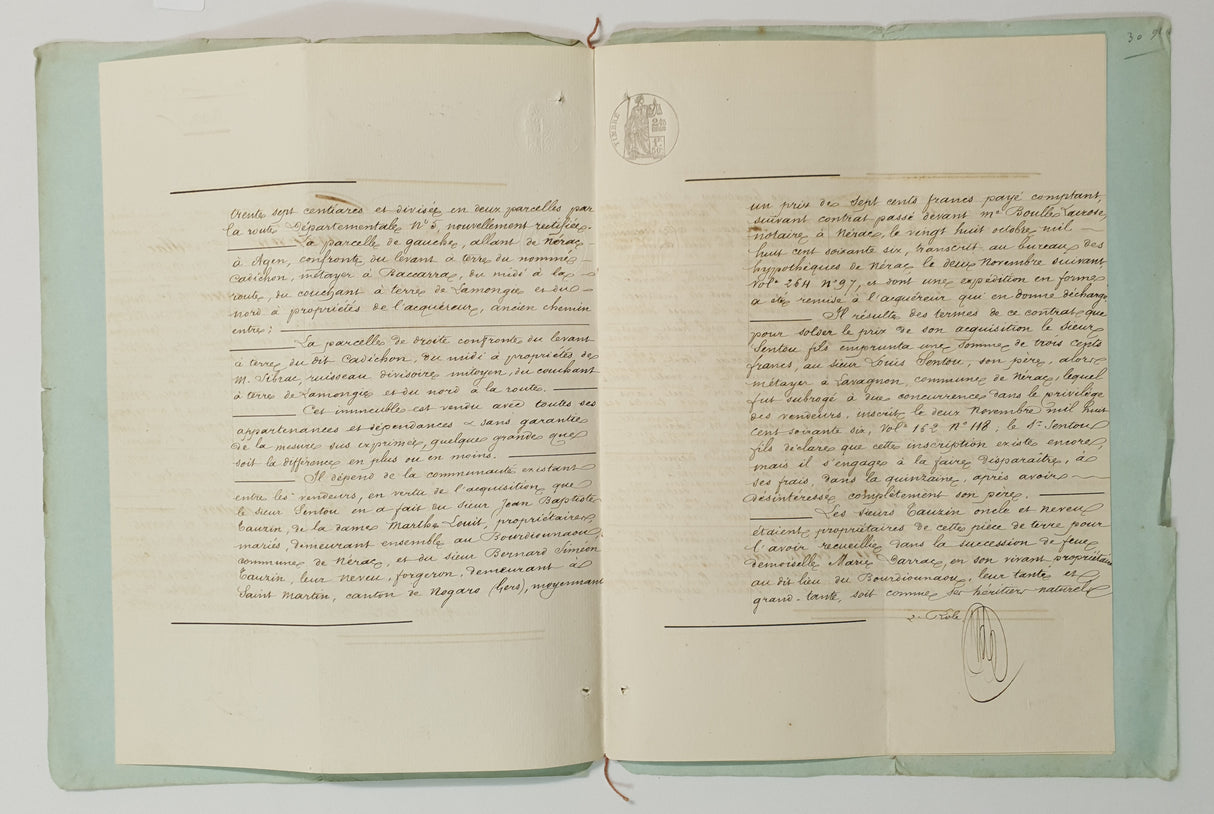 trente sept centiares et divisée en deux parcelles par
la route Départementale N° 5, nouvellement rectifiée.
La parcelle de gauche, allant de Nérac
à Agen, confronte du levant à terre du nommé
Cadichon, métayer à Baccarra, du midi à la
route, du couchant à terre de Lamongie et du
nord à propriétés de l'acquéreur, ancien chemin
entre;
La parcelle de droite confronte du levant
à terre du dit Cadichon, du midi à propriétés de
M. Sibrac, ruisseau divisoire mitoyen, du couchant
à terre de Lamongie et du nord à la route.
Cet immeuble est vendu avec toutes ses
appartenances et dépendances & sans garantie
de la mesure sus exprimée, quelque grande que
soit la différence en plus ou en moins.
Il dépend de la communauté existant
entre les vendeurs, en vertu de l'acquisition que
le sieur Sentou en a fait du sieur Jean Baptiste
Tauzin, de la dame Marthe Louit, propriétaires,
mariés, demeurant ensemble au Bourdiounaou,
commune de Nérac, et du sieur Bernard Siméon
Tauzin, leur neveu, forgeron, demeurant à
Saint Martin, canton de Nogaro (Gers), moyennant
30
TIMBRE
un prix de sept cents francs payé comptant,
suivant contrat passé devant Me Boullé Larose
notaire à Nérac, le vingt huit octobre mil
huit cent soixante six, transcrit au bureau des
hypothèques de Nérac le deux Novembre suivant
Vol. 264 N° 97, et dont une expédition en forme
a été remise à l'acquéreur qui en donne décharge
Il résulte des termes de ce contrat que
pour solder le prix de son acquisition le sieur
Sentou fils emprunta une somme de trois cents
francs, au sieur Louis Sentou, son père, alors
métayer à Lavagnon, commune de Nérac, lequel
fut subrogé à due concurrence dans le privilège
des vendeurs, inscrit le deux Novembre mil huit
cent soixante six, Vol. 152 N° 118; le Sr Sentou
fils déclare que cette inscription existe encore,
mais il s'engage à la faire disparaître, à
ses frais, dans la quinzaine, après avoir
désintéressé complètement son père.
Les sieurs Tauzin oncle et neveu
étaient propriétaires de cette pièce de terre pour
l'avoir recueillie dans la succession de feue
demoiselle Marie Darrac, en son vivant propriétaire
au dit lieu du Bourdiounaou, leur tante et
grand-tante, soit comme ses héritiers naturels
2e Rôle